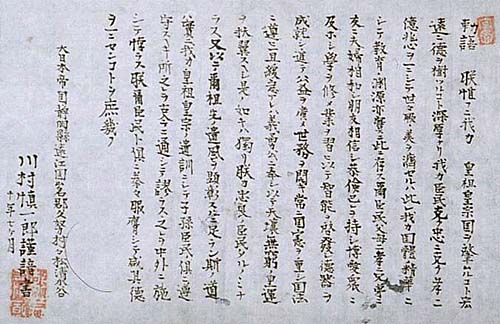 勅語 朕惟フニ我カ 皇祖皇宗国ヲ肇ムルコト宏
遠ニ徳ヲ樹ツルコト深厚ナリ我カ臣民克ク忠ニ克ク孝ニ
億兆心ヲ一ニシテ世々厥ノ美ヲ済セルハ此レ我カ国體ノ精華ニ
シテ教育ノ淵源亦實ニ此ニ存ス爾臣民父母ニ孝ニ兄弟ニ
友ニ夫婦相和シ朋友相信シ恭倹己レヲ持シ博愛衆ニ
及ホシ学ヲ修メ業ヲ習ヒ以テ智能ヲ啓發シ徳器ヲ
成就シ進テ公益ヲ廣メ世務ヲ開キ常ニ国憲ヲ重シ国法
ニ遵ヒ一旦緩急アレハ義勇公ニ奉シ以テ天壌無窮ノ皇運
ヲ扶翼スヘシ是ノ如キハ獨リ朕カ忠良ノ臣民タルノミナ
ラス又以テ爾祖先ノ遺風ヲ顕彰スルニ足ラン斯ノ道
ハ實ニ我カ皇祖皇宗ノ遺訓ニシテ子孫臣民ノ倶ニ遵
守スヘキ所之ヲ古今ニ通シテ謬ラス之ヲ中外ニ施
シテ悖ラス朕爾臣民ト倶ニ拳々服膺シテ咸其徳
ヲ一ニセンコトヲ庶幾フ
大日本帝国静岡縣遠江国
川村慎一郎謹
書
十年七月